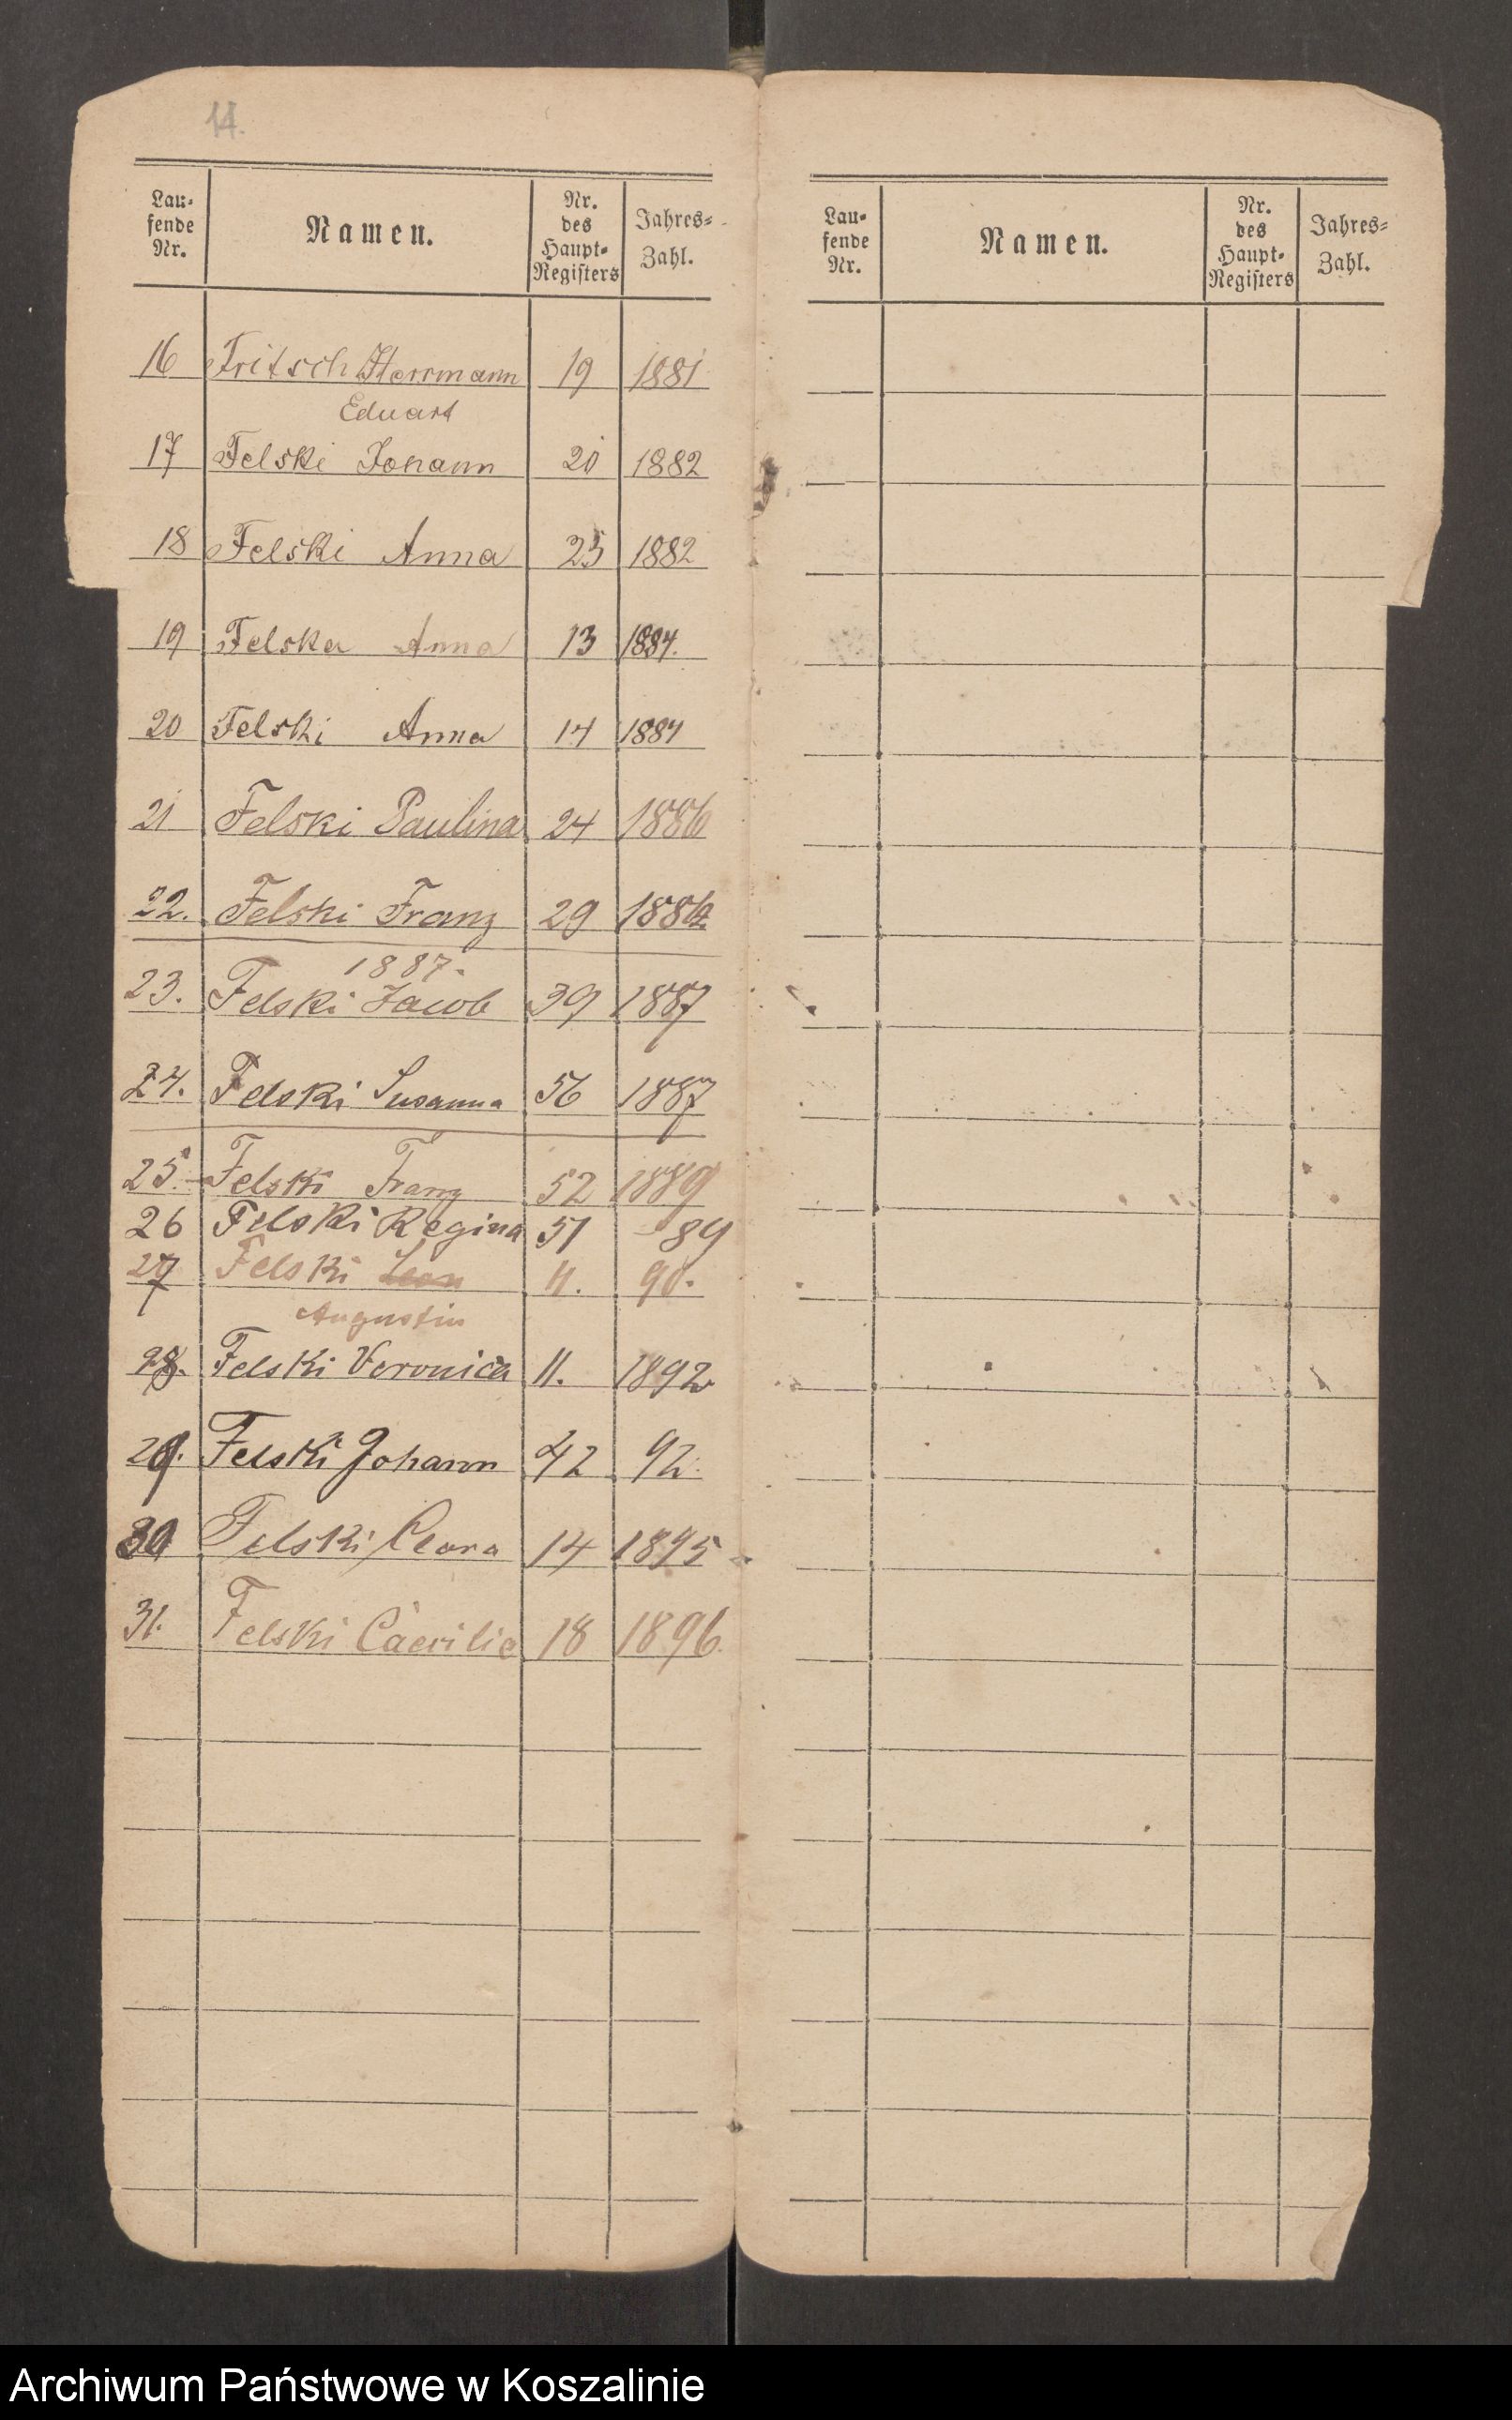 14.
Laufende Nr. Namen. Nr. des Haupt-Registers Jahres-Zahl.
16 Fritsch Herrmann 19 1881
Eduart
17 Felski Johann 20 1882
18 Felski Anna 25 1882
19 Felska Anna 13 1884.
20 Felski Anna 14 1884
21 Felski Paulina 24 1886
22. Felski Franz 29 1886.
1887.
23. Felski Jacob 39 1887
24. Felski Susanna 56 1887
25. Felski Franz 52 1889
26 Felski Regina 51 89
27 Felski Leon 11. 90.
Augustin
28. Felski Veronica 11. 1892
29. Felski Johann 42 92.
30 Felski Clara 14 1895
31. Felski Cäcilie 18 1896.
Laufende Nr. Namen. Nr. des Haupt-Registers Jahres-Zahl.
Archiwum Państwowe w Koszalinie